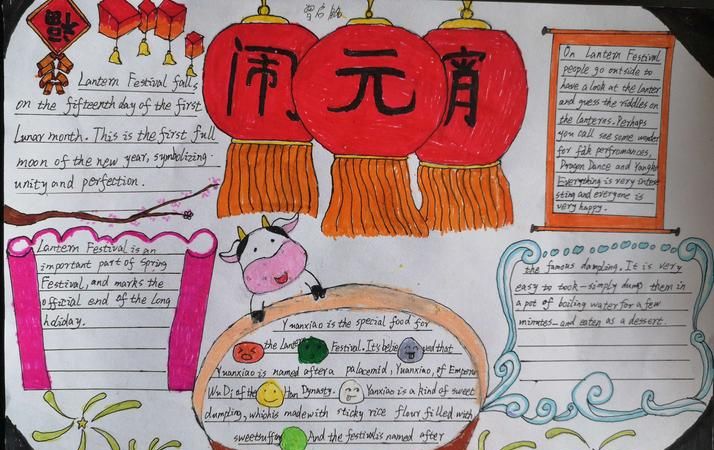 福
闹元宵
Lantern Festival falls
on the fifteenth day of the first
Lunar month. This is the first full
moon of the new year, symbolizing
unity and perfection.
On Lantern Festival
people go outside to
have a look at the lanter
and guess the riddles on
the lanterns. Perhaps
you call see some wonder
for folk perfromances,
Dragon Dance and Yangko
Everything is very intere
sting and everyone is
very happy.
Lantern Festival is an
important part of Spring
Festival, and marks the
official end of the long
holiday.
Yuanxiao is the special food for
the Lantern Festival. It's belie ved that
Yuanxiao is named after a palacemid, Yuanxiao, of Emperor
Wu Di; of the Han Dynasty. Yanxiao is a kind of sweet
dumpling, which is made with sticky rice flour filled with
sweet stuffing And the festival is named after
the famous dumpling. It is very
easy to took - simply dump them in
a pot of boiling water for a few
minutes - and eaten as a dessert.